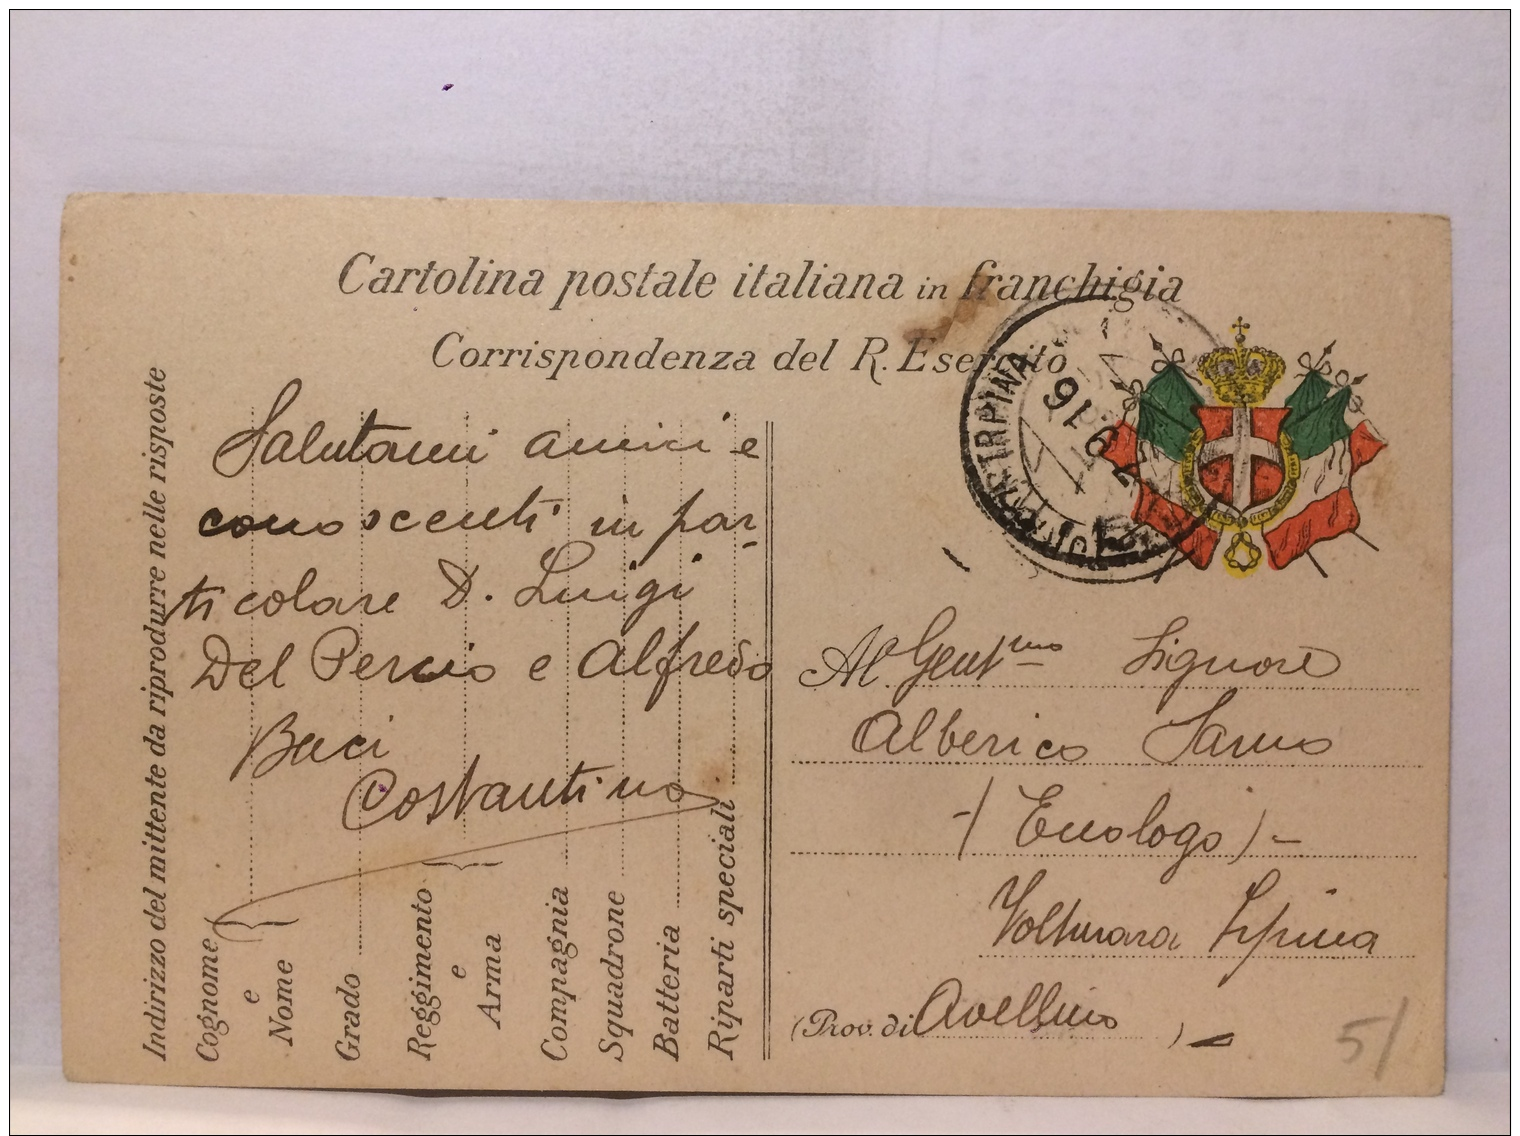 Cartolina postale italiana in franchigia
Corrispondenza del R. Esercito
Indirizzo del mittente da riprodurre nelle risposte
Cognome
e
Nome
Grado
Reggimento
e
Arma
Compagnia
Squadrone
Batteria
Riparti speciali
Salutami amici e
conoscenti in par-
ticolare D. Luigi
Del Percio e Alfredo
Baci
Costantino
IRPINA
9 16
Al Gentmo Signore
Alberico Sarno
-(Enologo)-
Volturara Irpina
(Prov. di Avellino )
5/